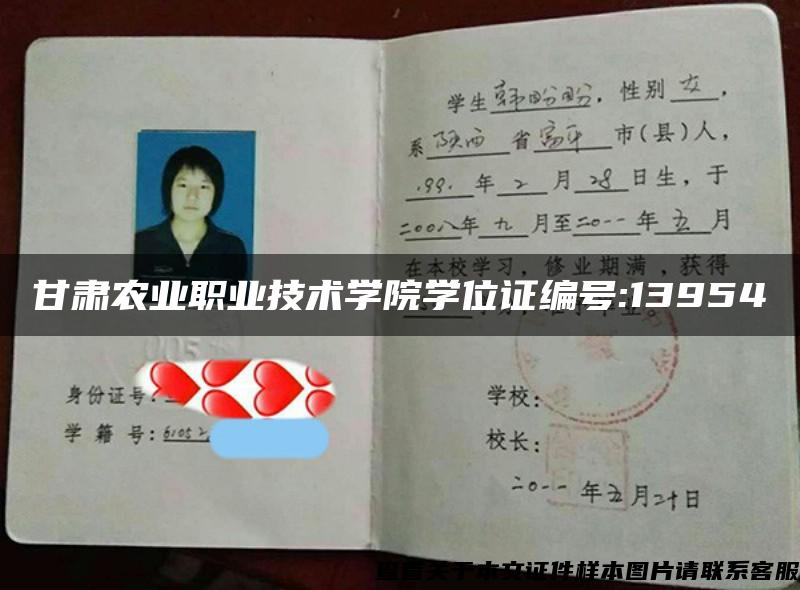 学生韩盼盼，性别女，
系陕西省富平市(县)人，
1991年2月28日生，于
二00八年九月至二0一一年五月
在本校学习，修业期满，获得
甘肃农业职业技术学院学位证编号:13954
005
身份证号:
学籍号:61052
学校:
校长:
二0一一年五月二十日
查看关于本文证件样本图片请联系客服